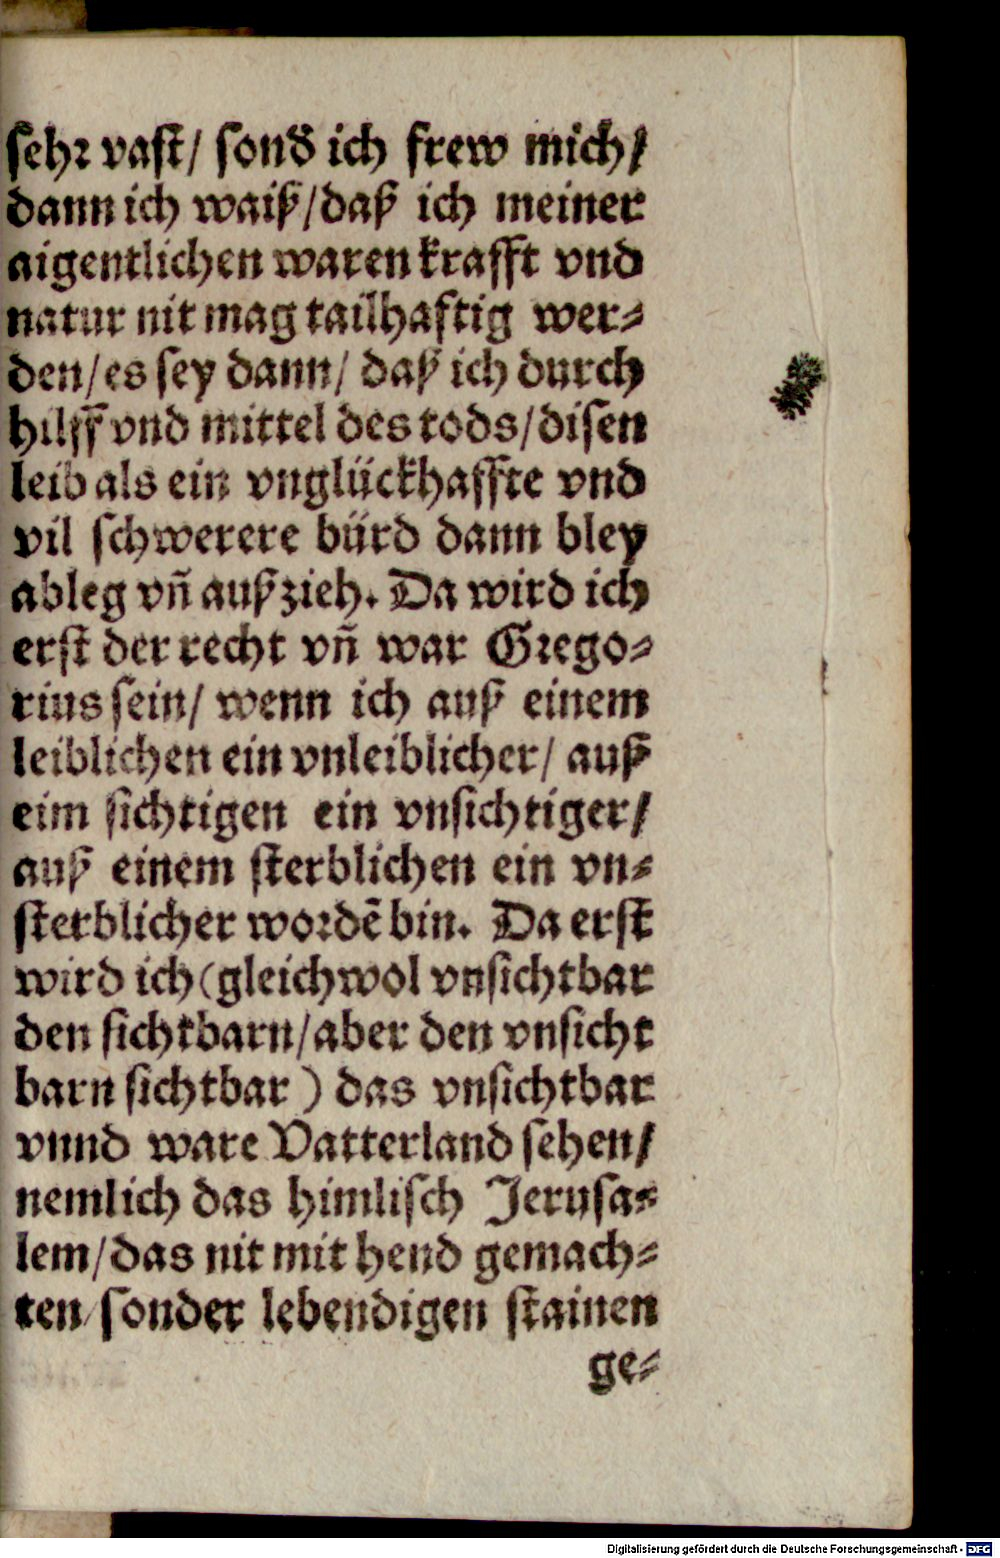 sehr vast/ sonđ ich frew mich/
dann ich waiß/daß ich meiner
aigentlichen waren krafft vnd
natur nit mag tailhaftig wer⸗
den/es sey dann/ daß ich durch
hilff vnd mittel des tods/disen
leib als ein vnglückhaffte vnd
vil schwerere bürd dann bley
ableg vñ außzieh. Da wird ich
erst der recht vñ war Grego⸗
rius sein/ wenn ich auß einem
leiblichen ein vnleiblicher/ auß
eim sichtigen ein vnsichtiger/
auß einem sterblichen ein vn⸗
sterblicher wordẽ bin. Da erst
wird ich (gleichwol vnsichtbar
den sichtbarn/aber den vnsicht
barn sichtbar) das vnsichtbar
vnnd ware Vatterland sehen/
nemlich das himlisch Jerusa⸗
lem/das nit mit hend gemach⸗
ten/sonder lebendigen stainen
ge⸗
Digitalisierung gefördert durch die Deutsche Forschungsgemeinschaft - DFG